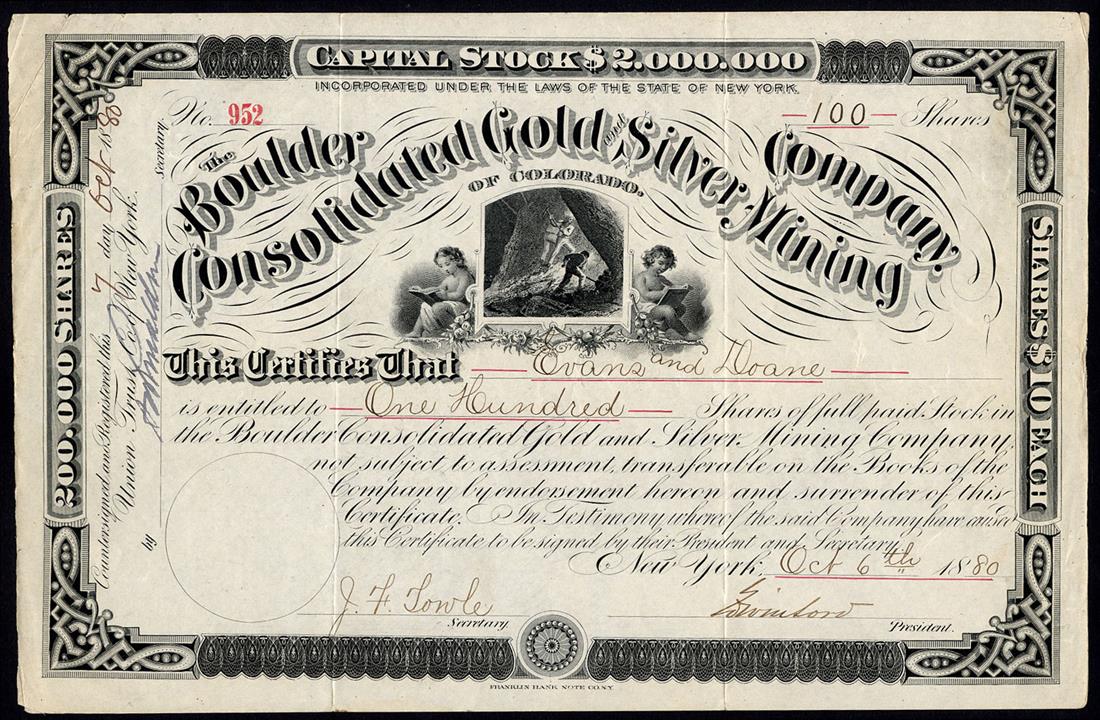 CAPITAL STOCK $2.000.000
INCORPORATED UNDER THE LAWS OF THE STATE OF NEW YORK.
No. 952
100 Shares
The Boulder
Consolidated Gold and Silver Mining
Company
OF COLORADO.
This Certifies That Evans and Doane
is entitled to One Hundred Shares of full paid Stock in
the Boulder Consolidated Gold and Silver Mining Company,
not subject to assessment, transferable on the Books of the
Company by endorsement hereon and surrender of this
Certificate. In Testimony whereof the said Company have caused
this Certificate to be signed by their President and Secretary
New York, Oct 6th 1880
J. F. Towle
Secretary.
President.
200.000 SHARES
SHARES $10 EACH
Countersigned and Registered this 7 day Oct 1880
Union Trust Co. of New York.
by
Secretary.
FRANKLIN BANK NOTE CO. N.Y.